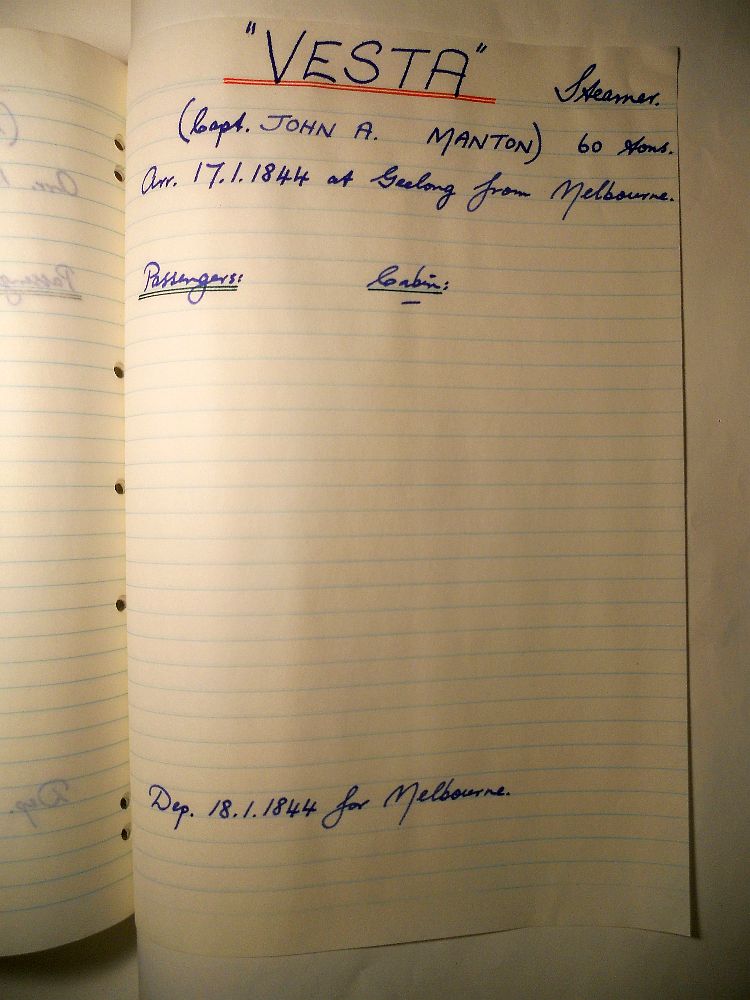 "VESTA" Steamer.
(Capt. JOHN A. MANTON) 60 tons.
Arr. 17.1.1844 at Geelong from Melbourne.
Passengers: Cabin:
Dep. 18.1.1844 for Melbourne.